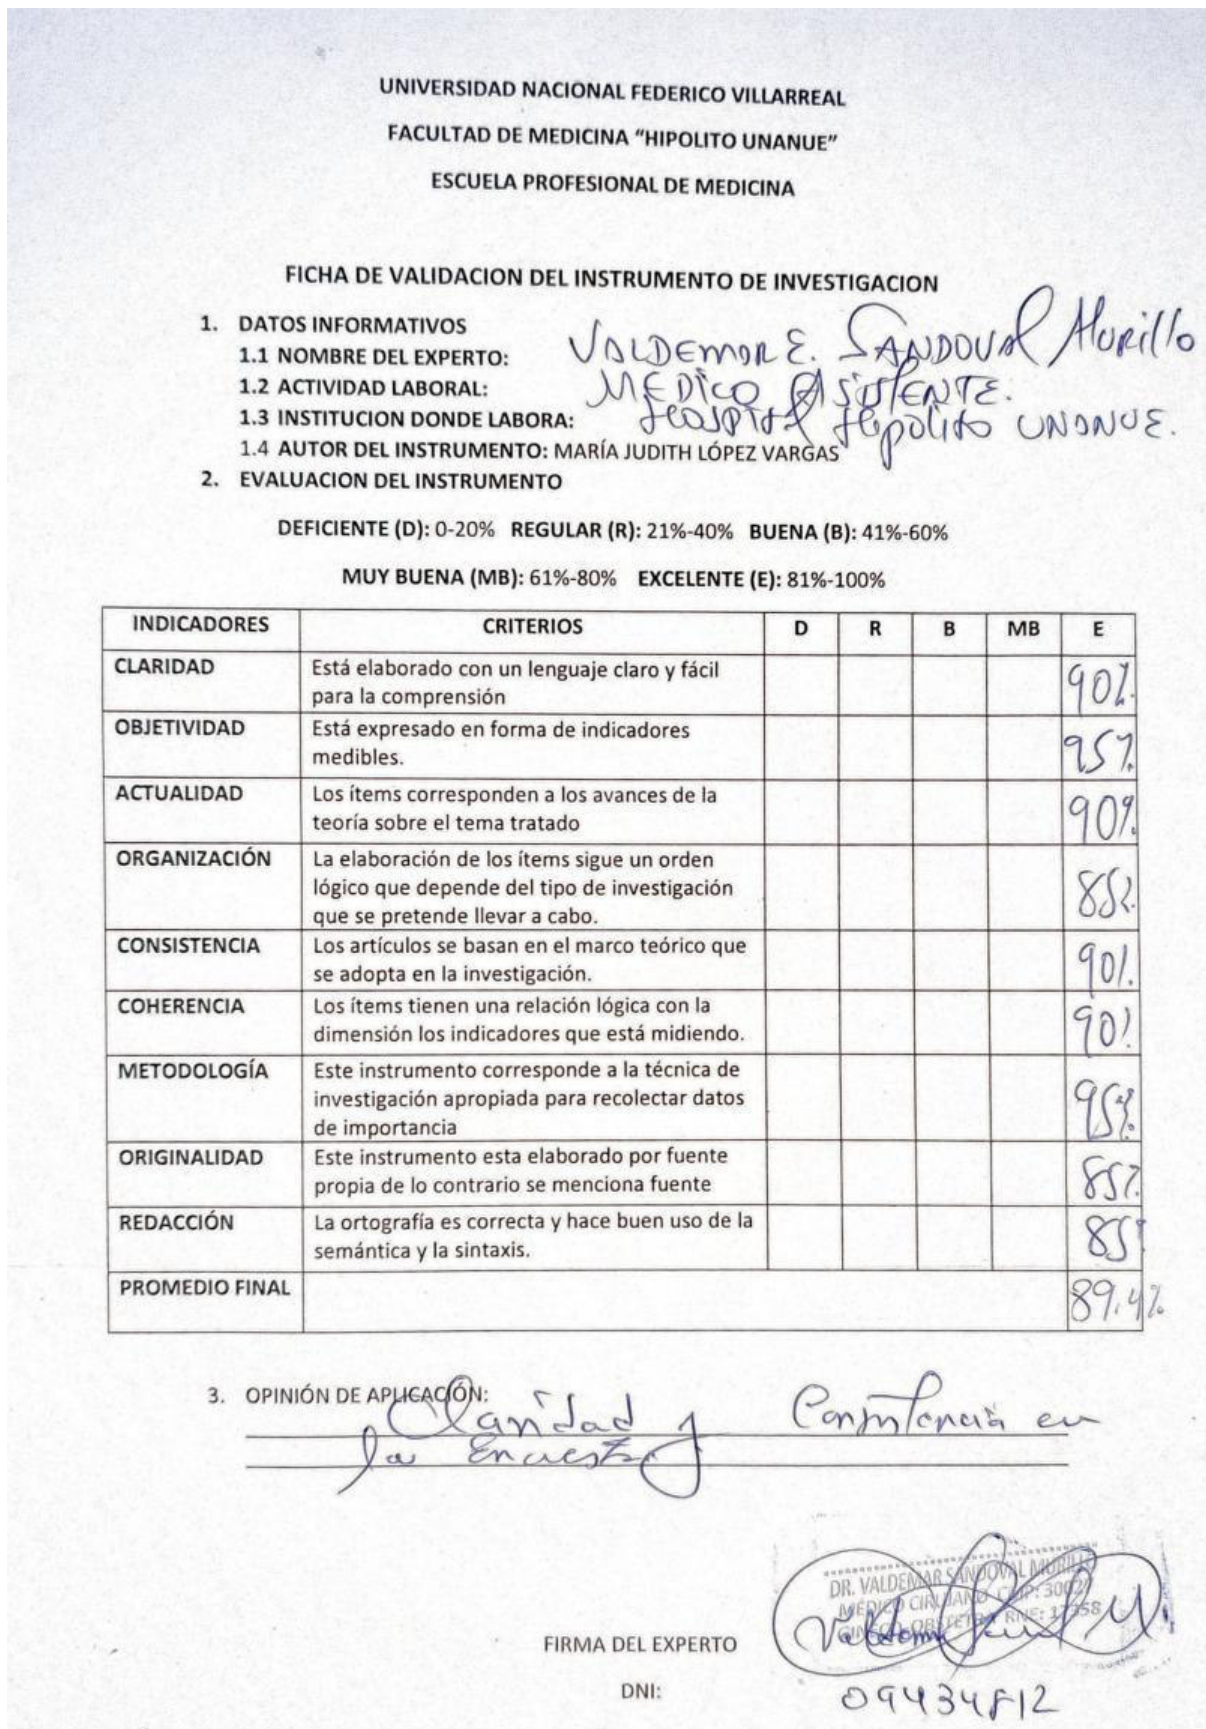 UNIVERSIDAD NACIONAL FEDERICO VILLARREAL
FACULTAD DE MEDICINA “HIPOLITO UNANUE”
ESCUELA PROFESIONAL DE MEDICINA
FICHA DE VALIDACION DEL INSTRUMENTO DE INVESTIGACION
1. DATOS INFORMATIVOS
1.1 NOMBRE DEL EXPERTO: VALDEMAR E. SANDOVAL Murillo
1.2 ACTIVIDAD LABORAL: MEDICO ASISTENTE.
1.3 INSTITUCION DONDE LABORA: Hospital Hipolito UNANUE.
1.4 AUTOR DEL INSTRUMENTO: MARÍA JUDITH LÓPEZ VARGAS
2. EVALUACION DEL INSTRUMENTO
DEFICIENTE (D): 0-20% REGULAR (R): 21%-40% BUENA (B): 41%-60%
MUY BUENA (MB): 61%-80% EXCELENTE (E): 81%-100%
INDICADORES CRITERIOS D R B MB E
CLARIDAD Está elaborado con un lenguaje claro y fácil
para la comprensión 90%
OBJETIVIDAD Está expresado en forma de indicadores
medibles. 95%
ACTUALIDAD Los ítems corresponden a los avances de la
teoría sobre el tema tratado 90%
ORGANIZACIÓN La elaboración de los ítems sigue un orden
lógico que depende del tipo de investigación
que se pretende llevar a cabo. 85%
CONSISTENCIA Los artículos se basan en el marco teórico que
se adopta en la investigación. 90%
COHERENCIA Los ítems tienen una relación lógica con la
dimensión los indicadores que está midiendo. 90%
METODOLOGÍA Este instrumento corresponde a la técnica de
investigación apropiada para recolectar datos
de importancia 95%
ORIGINALIDAD Este instrumento esta elaborado por fuente
propia de lo contrario se menciona fuente 85%
REDACCIÓN La ortografía es correcta y hace buen uso de la
semántica y la sintaxis. 85%
PROMEDIO FINAL 89.4%
3. OPINIÓN DE APLICACIÓN: Claridad y Consistencia en
la Encuesta
DR. VALDEMAR SANDOVAL MURILLO
MÉDICO CIRUJANO CMP: 30027
GINECO OBSTETRA RNE:
FIRMA DEL EXPERTO
DNI: 09434812